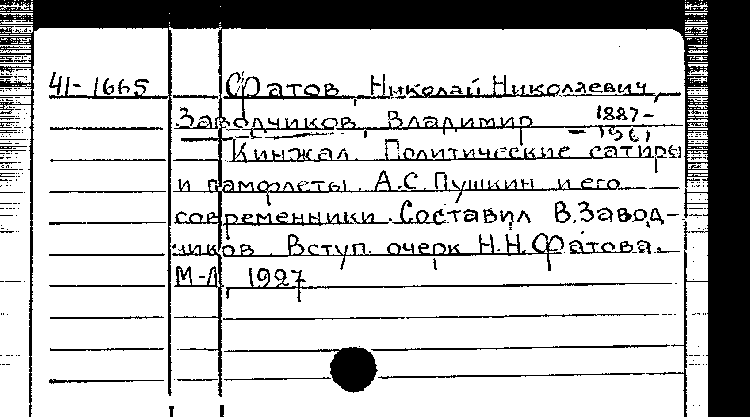 41-1665 Фатов, Николай Николаевич,
Заводчиков, Владимир 1887-
1961
Кинжал. Политические сатиры
и памфлеты. А.С.Пушкин и его
современники. Составил В.Завод-
чиков. Вступ. очерк Н.Н.Фатова.
М-Л, 1927